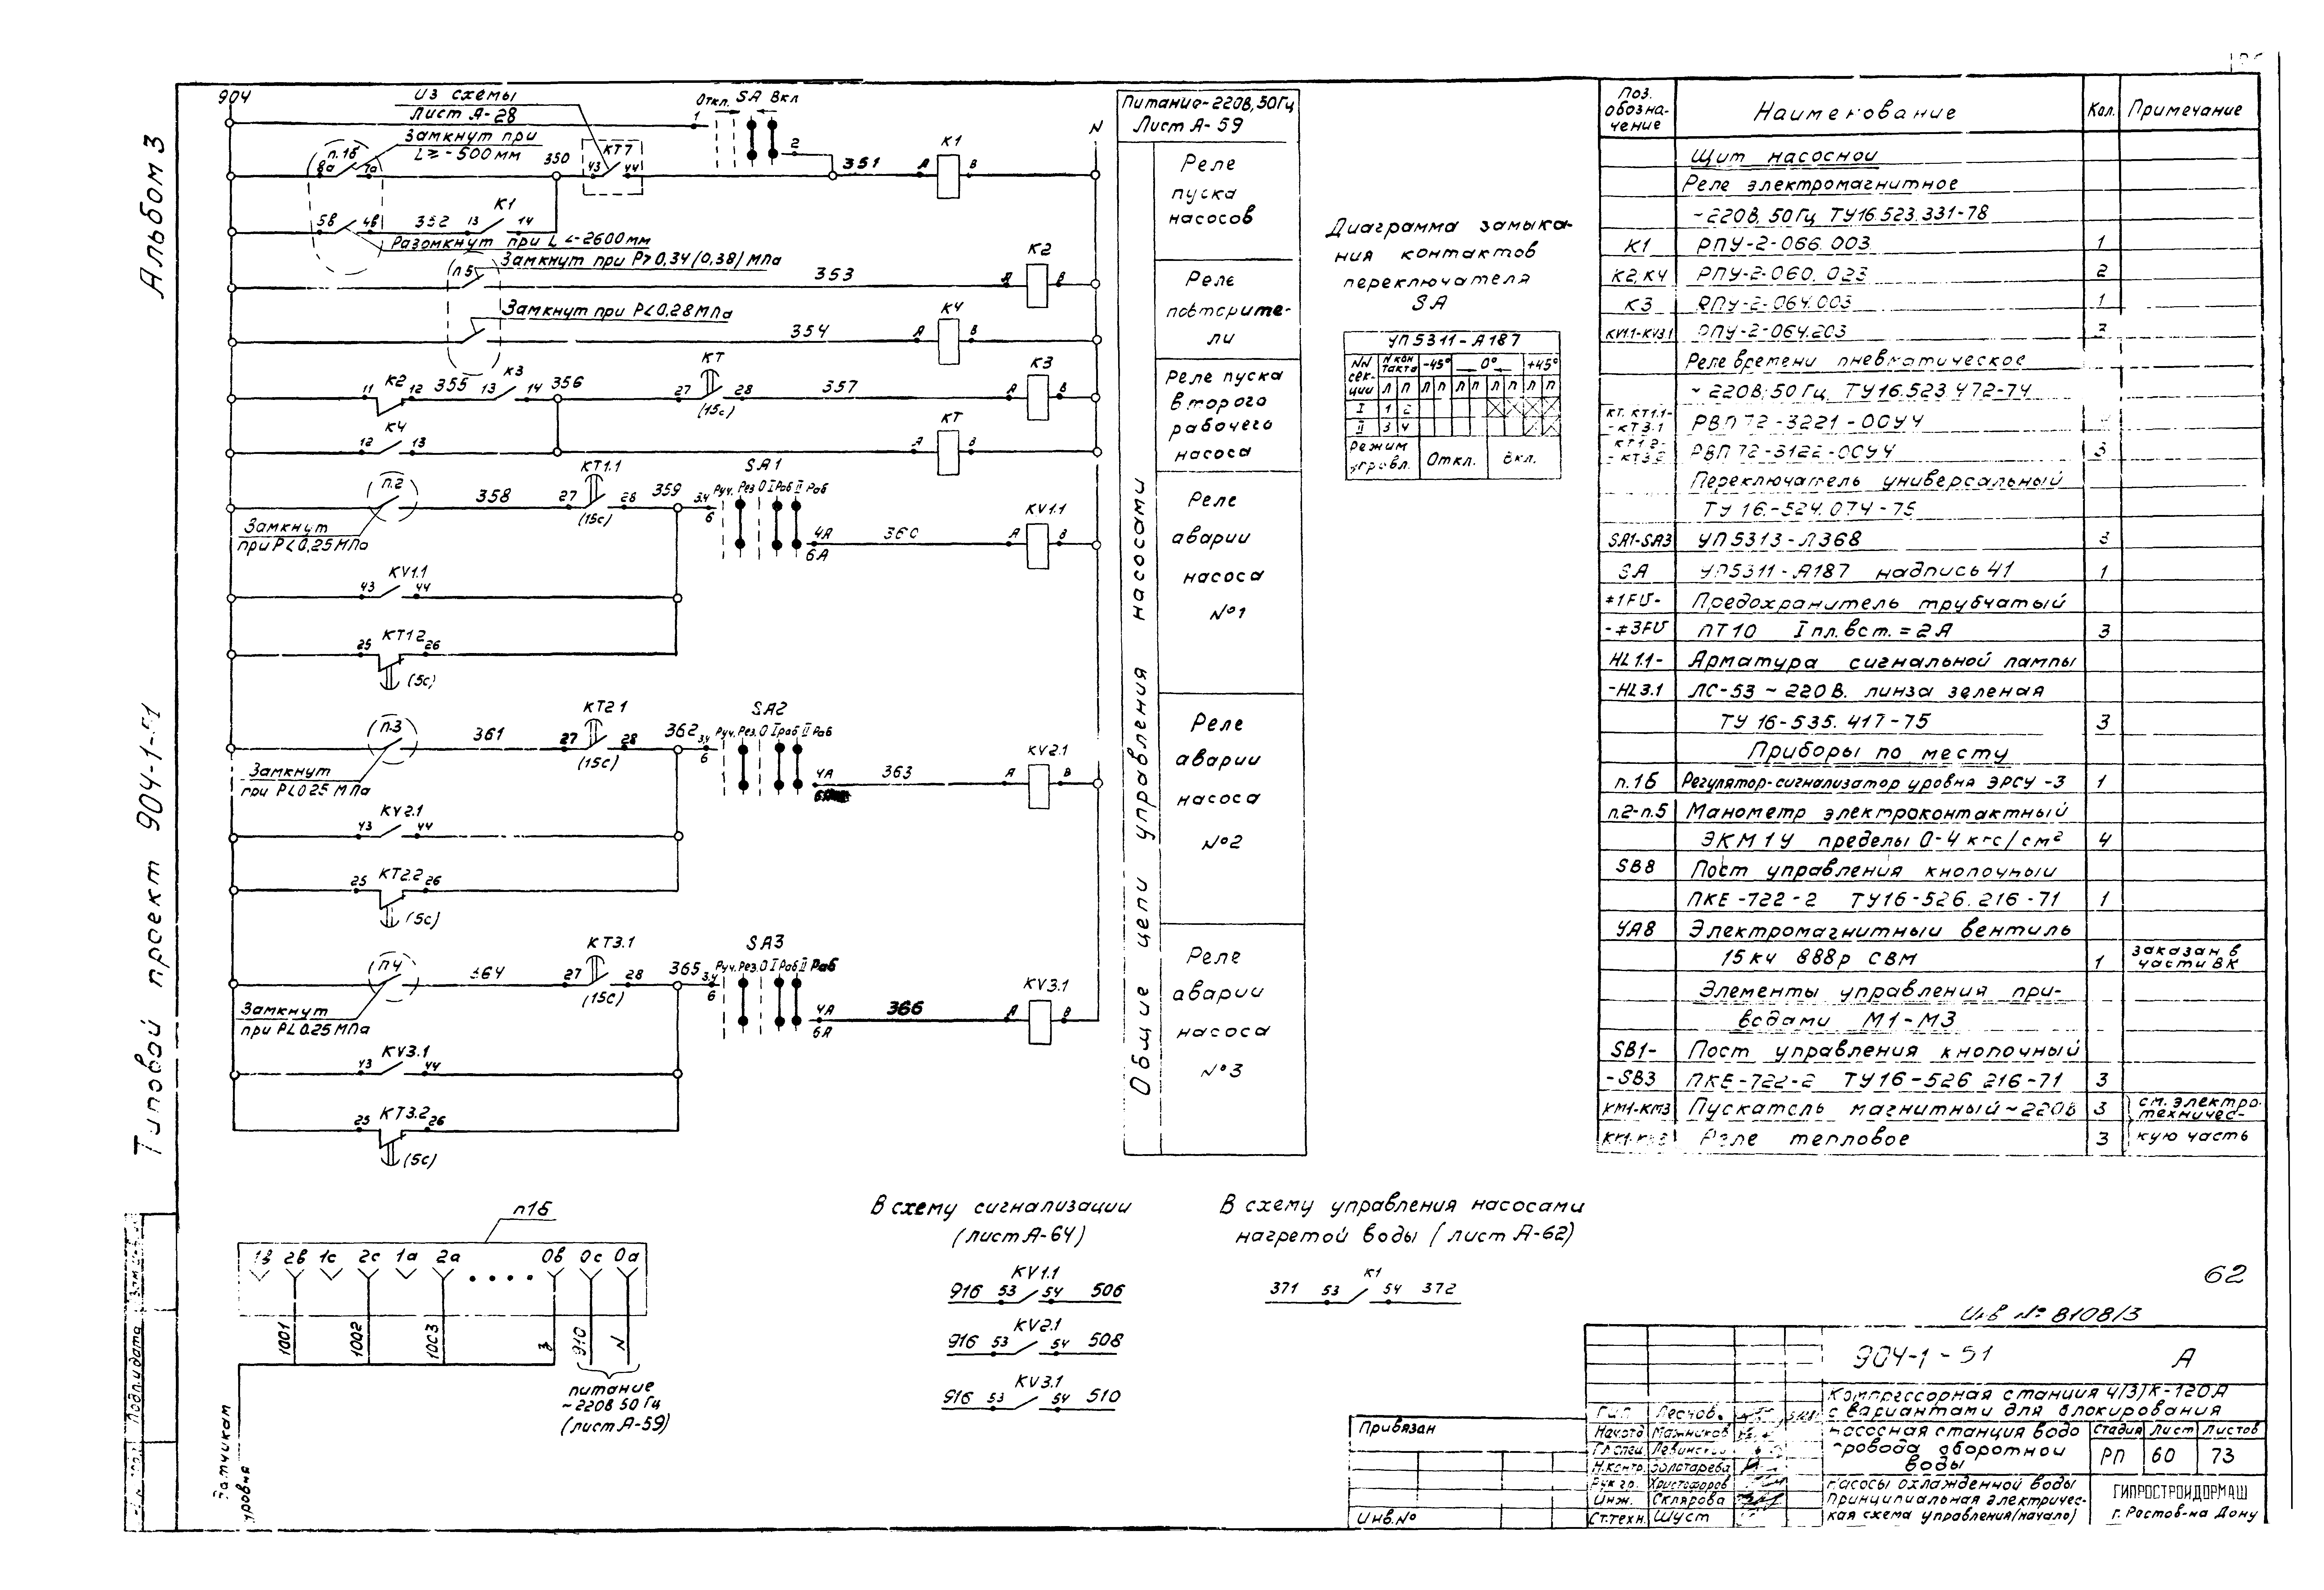 Альбом 3
Типовой проект 904-1-51
904
из схемы
Лист А-28
Замкнут при
L ≥ -500 мм
п.1б
8а 7а
350
КТ7
43 44
Откл. SA Вкл
1
2
351
К1
А В
N
5В 4В 352 13 К1 14
Разомкнут при L <-2600 мм
п5
Замкнут при Р>0,34 (0,38) МПа
353
К2
А В
Замкнут при Р<0,28 МПа
354
К4
А В
11 К2 12 355 13 К3 14 356
27 КТ 28
(15с)
357
К3
А В
12 К4 13
КТ
А В
п.2
358
КТ1.1
27 28
(15с)
359
3,4
6
SA1
Руч. Рез. О I Раб II Раб
4А
6А
360
KV1.1
А В
Замкнут
при Р<0,25 МПа
KV1.1
43 44
КТ1.2
25 26
(5с)
п.3
361
КТ2.1
27 28
(15с)
362
3,4
6
SA2
Руч. Рез. О I раб II Раб
4А
363
KV2.1
А В
Замкнут
при Р<0.25 МПа
KV2.1
43 44
КТ2.2
25 26
(5с)
п4
364
КТ3.1
27 28
(15с)
365
3,4
6
SA3
Руч. Рез. О I Раб II Раб
4А
6А
366
KV3.1
А В
Замкнут
при Р<0.25 МПа
KV3.1
43 44
КТ3.2
25 26
(5с)
Питание~220В, 50Гц
Лист А-59
Общие цепи управления насосами
Реле
пуска
насосов
Реле
повторите-
ли
Реле пуска
второго
рабочего
насоса
Реле
аварии
насоса
№1
Реле
аварии
насоса
№2
Реле
аварии
насоса
№3
Диаграмма замыка-
ния контактов
переключателя
SA
УП5311-А187
NN секции N контакта -45° 0° +45°
Л П Л П Л П Л П Л П
I 1 2
II 3 4
Режим управл. Откл. Вкл.
Поз. обозна-чение Наименование Кол. Примечание
Щит насосной
Реле электромагнитное
~220В, 50Гц ТУ16.523.331-78
К1 РПУ-2-066.003 1
К2,К4 РПУ-2-060.023 2
К3 РПУ-2-064.003 1
KV1.1-KV3.1 РПУ-2-064.203 3
Реле времени пневматическое
~220В, 50Гц, ТУ16.523.472-74
КТ, КТ1.1-
-КТ3.1 РВП72-3221-00У4
КТ1.2-
-КТ3.2 РВП72-3122-00У4 3
Переключатель универсальный
ТУ16.-524.074-75
SA1-SA3 УП5313-Л368 3
SA УП5311-А187 надпись 41 1
*1FU- Предохранитель трубчатый
-*3FU ПТ10 Iпл.вст.=2А 3
HL1.1- Арматура сигнальной лампы
-HL3.1 ЛС-53~220В. линза зеленая
ТУ16-535.417-75 3
Приборы по месту
п.1б Регулятор-сигнализатор уровня ЭРСУ-3 1
п.2-п.5 Манометр электроконтактный
ЭКМ1У пределы 0-4 кгс/см² 4
SB8 Пост управления кнопочный
ПКЕ-722-2 ТУ16-526.216-71 1
УА8 Электромагнитный вентиль
15кч 888р СВМ 1 заказан в
части ВК
Элементы управления при-
водами М1-М3
SB1- Пост управления кнопочный
-SB3 ПКЕ-722-2 ТУ16-526 216-71 3
КМ1-КМ3 Пускатель магнитный~220В 3 см. электро-
техничес-
Реле тепловое 3 кую часть
п1б
1в 2в 1с 2с 1а 2а 0в 0с 0а
1001 1002 1003 3 910 N
питание
~220В 50Гц
(лист А-59)
Датчикам
уровня
В схему сигнализации
(лист А-64)
KV1.1
916 53 54 506
KV2.1
916 53 54 508
KV3.1
916 53 54 510
В схему управления насосами
нагретой воды (лист А-62)
К1
371 53 54 372
62
Инв № 8108/3
904-1-51 А
Компрессорная станция 4(3)К-120А
с вариантами для блокирования
Насосная станция водо
провода оборотной
воды
Стадия Лист Листов
РП 60 73
Насосы охлажденной воды
Принципиальная электричес-
кая схема управления (начало)
ГИПРОСТРОЙДОРМАШ
г. Ростов-на Дону
Привязан
Инв.№
Гип Леснов
Нач.отд Мажников
Гл.спец Левинский
Н.контр. Золотарева
Рук.гр. Христофоров
Инж. Склярова
Ст.техн. Шуст
Подп. и дата